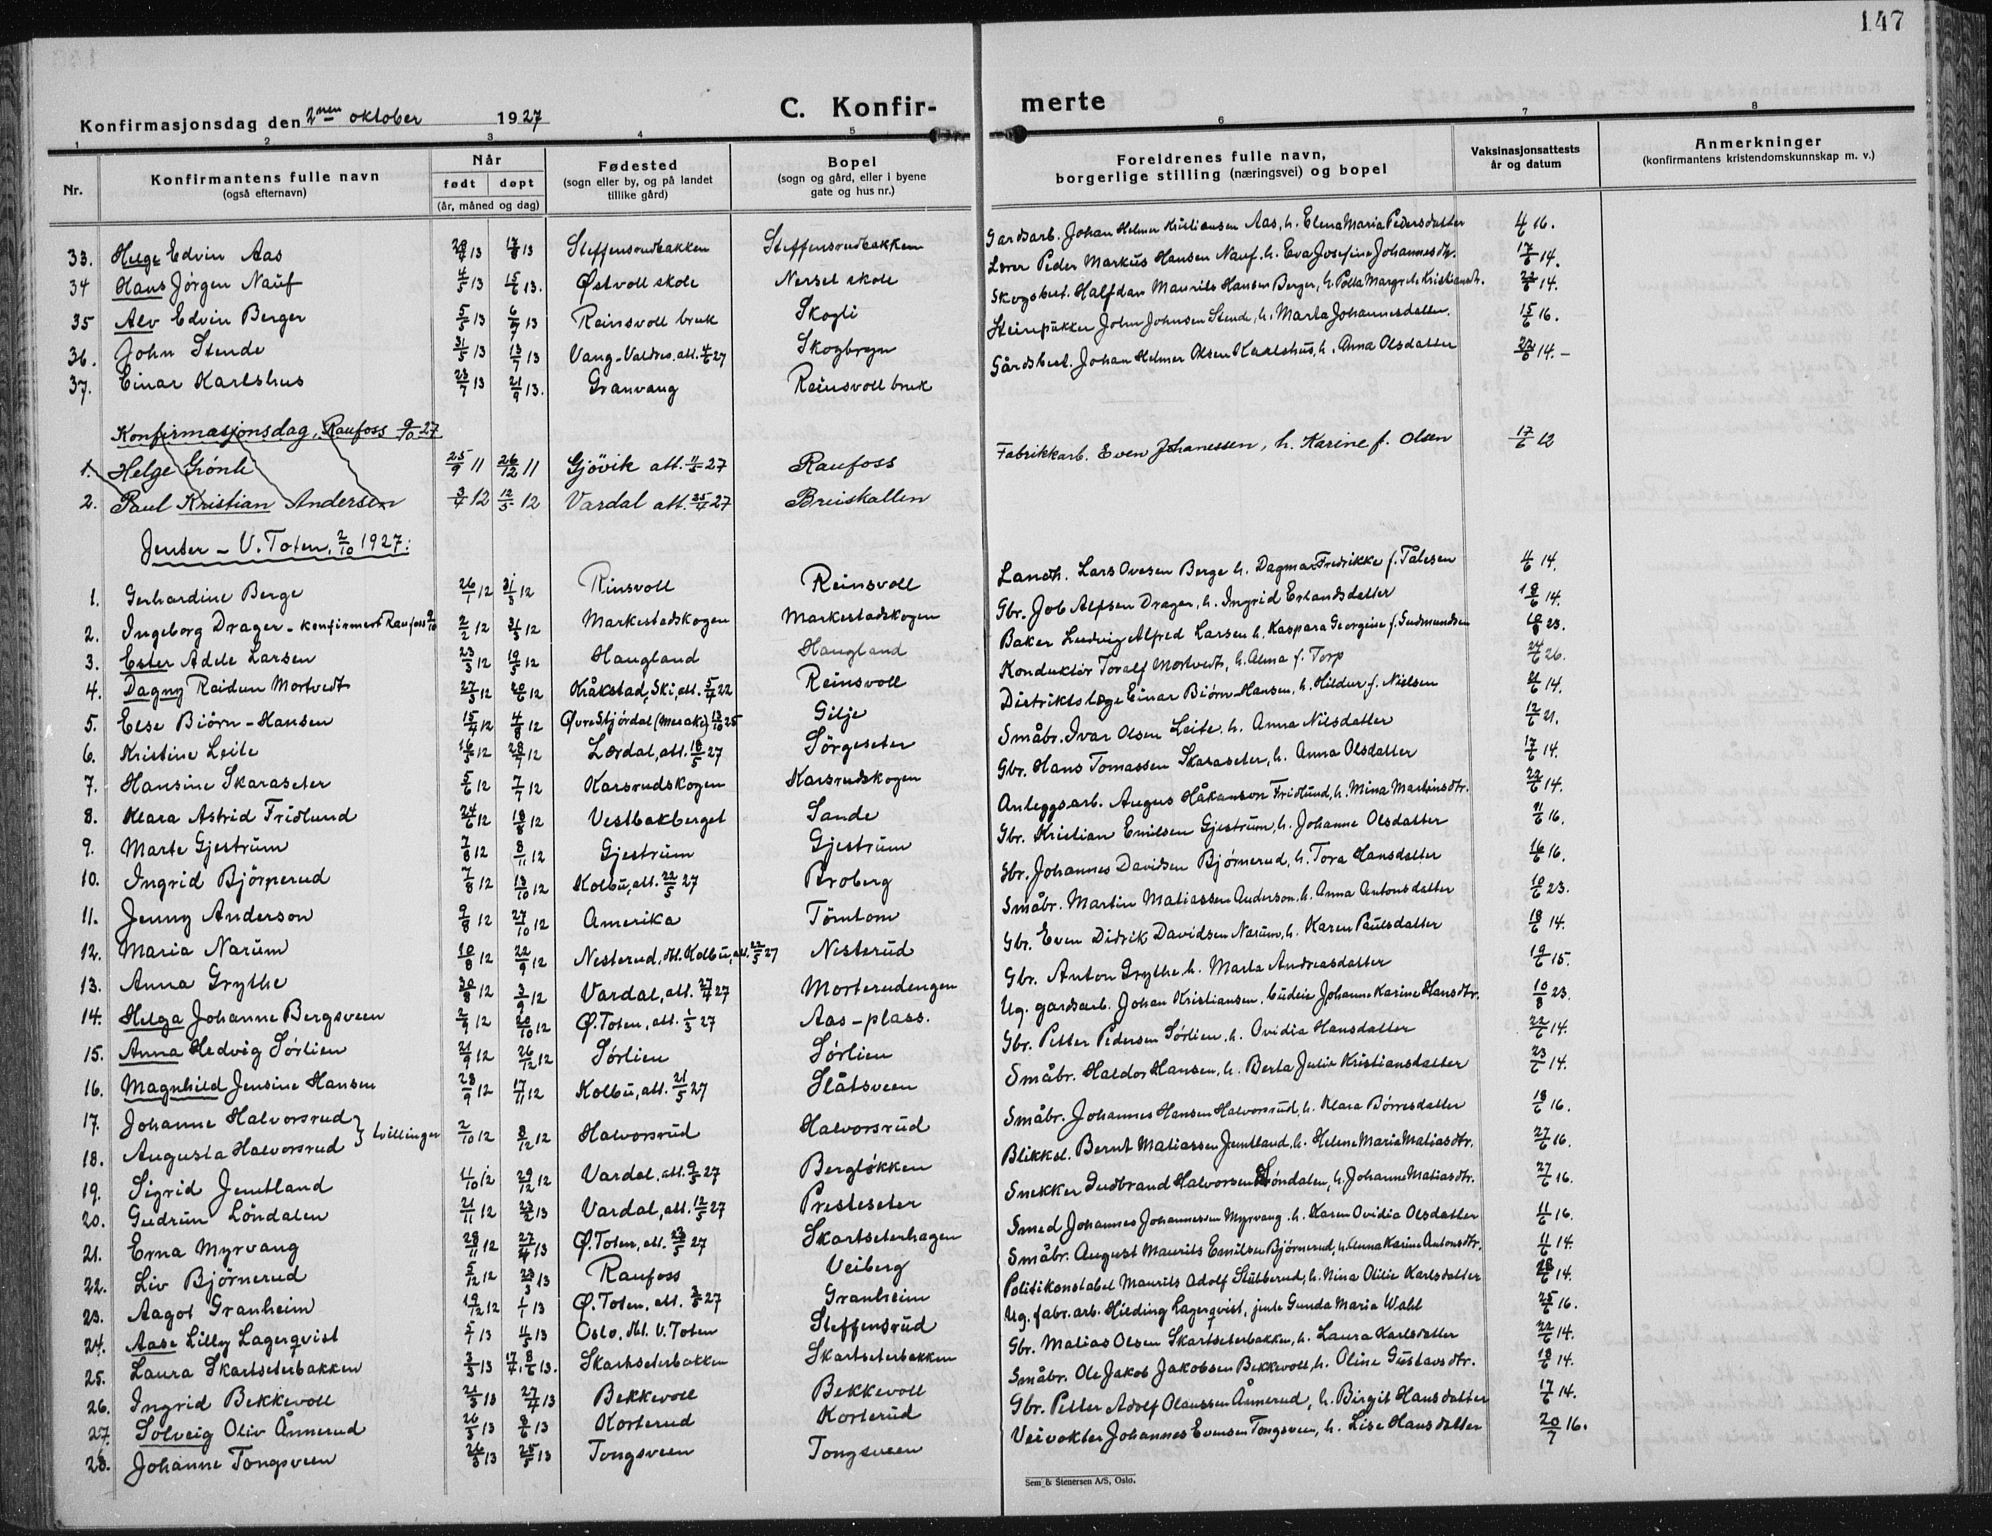 147
Konfirmasjonsdag den 2nen oktober 1927
C. Konfir-
merte
1 2 3 4 5 6 7 8
Nr.
Konfirmantens fulle navn
(også efternavn)
Når
født døpt
(år, måned og dag)
Fødested
(sogn eller by, og på landet
tillike gård)
Bopel
(sogn og gård, eller i byene
gate og hus nr.)
Foreldrenes fulle navn,
borgerlige stilling (næringsvei) og bopel
Vaksinasjonsattests
år og datum
Anmerkninger
(konfirmantens kristendomskunnskap m. v.)
33. Helge Edvin Aas 13 13 Steffensrudbakken Steffensrudbakken Gardsarb. Johan Helmer Kristiansen Aas, h. Elena Maria Pedersdatter 4/6 16.
34 Hans Jørgen Nauf 4/5 13 15/6 13. Østvoll skole Nerset skole Lærer Peder Markus Hansen Nauf. h. Eva Josefine Johannesdtr. 17/6 14.
35 Alv Edvin Berger 5/5 13 6/7 13 Reinsvoll bruk Skogli Skogsbest. Halfdan Maurits Hansen Berger, h. Margrete Kristiansdtr. 22/6 14.
36. John Stende 31/5 13 13/7 13 Vang-Valdres. att. 4/5 27 Skogbryn Steinpukker John Johnsen Stende, h. Marta Johannesdatter. 15/6 16.
37. Einar Karlshus 23/7 13 21/9 13. Granvang Reinsvoll bruk Gårdsbest. Johan Helmer Olsen Karlshus, h. Anna Olsdatter 22/6 14.-
Konfirmasjonsdag, Raufoss 9/10 27
1. Helge Grönli 25/9 11 26/12 11 Gjövik att. 11/5 27 Raufoss Fabrikkarb. Even Johanessen, h. Karine f. Olsen 17/6 12
2. Paul Kristian Andersen 3/4 12 12/5 12 Vardal att. 25/4 27 Breiskallen
Jenter - V. Toten, 2/10 1927:
1. Gerhardine Berge 26/1 12 31/3 12 Rinsvoll Reinsvoll Landh. Lars Ovesen Berge h. Dagmar Fredrikke f. Talesen 4/6 14.
2. Ingeborg Drager - konfirmert Raufoss 9/10 2/2 12 31/3 12 Markestadskogen Markestadskogen Gbr. Job Alfsen Drager, h. Ingrid Erlandsdatter 18/6 14.
3. Ester Adele Larsen 23/3 12 19/5 12 Haugland Haugland Baker Ludvig Alfred Larsen h. Kaspara Georgine f. Gudmundsen 10/8 23.
4. Dagny Reidun Mortvedt 27/3 12 20/6 12 Kråkstad, Ski, att. 5/7 22 Reinsvoll Konduktör Toralf Mortvedt, h. Alma f. Torp 24/6 26.
5. Else Biörn-Hansen 15/4 12 4/8 12 Øvre Stjördal (Meraker) 13/10 25 Gilje Distriktslæge Einar Biörn-Hansen, h. Hildur f. Nielsen 21/6 14.
6. Kristine Leite 16/5 12 28/7 12 Lærdal, att. 18/5 27 Sörgeseter Småbr. Ivar Olsen Leite. h. Anna Nilsdatter 12/6 21.
7. Hansine Skaraseter 5/6 12 7/7 12 Karsrudskogen Karsrudskogen Gbr. Hans Tomassen Skaraseter, h. Anna Olsdatter 17/6 14.
8. Klara Astrid Fridlund 24/6 12 18/8 12 Vestbakberget Sande Anleggsarb. August Håkanson Fridlund, h. Mina Martinsdtr. 22/6 14.
9. Marte Gjestrüm 7/8 12 8/11 12 Gjestrüm Gjestrüm Gbr. Kristian Emilsen Gjestrüm, h. Johanne Olsdatter 11/6 16.
10. Ingrid Björnerud 7/8 12 13/10 12 Kolbu, att. 22/5 27 Broberg Gbr. Johannes Davidsen Bjørnerud, h. Tora Hansdatter 16/6 16.
11. Jenny Anderson 9/8 12 27/10 12 Amerika Tömtom Småbr. Martin Matiassen Anderson, h. Anna Antonsdatter 10/6 23.
12. Maria Narüm 10/8 12 22/9 12 Nesterud, Kolbu, att. 22/5 27 Nesterud Gbr. Even Didrik Davidsen Narüm, h. Karen Paulsdatter 18/6 14.
13. Anna Grythe 30/8 12 3/9 12 Vardal, att. 27/4 27 Morterudengen Gbr. Anton Grythe h. Marta Andreasdatter 19/6 15.
14. Helga Johanne Bergsveen 2/9 12 20/10 12 Ø. Toten, att. 1/3 27 Aas-plass. Ug. gardsarb. Johan Kristiansen, budeie Johanne Karine Hansdtr. 10/8 23.
15. Anna Hedvig Sørlien 21/9 12 26/12 12 Sørlien Sørlien Gbr. Petter Pedersen Sørlien, h. Ovidia Hansdatter 22/6 14.
16. Magnhild Jensine Hansen 28/9 12 17/11 12 Kolbu, att. 21/5 27 Slåtsveen Småbr. Haldor Hansen, h. Berta Julie Kristiansdatter 23/6 14.
17. Johanne Halvorsrud } tvillinger 2/10 12 8/12 12 Halvorsrüd Halvorsrüd Småbr. Johannes Hansen Halvorsrüd, h. Klara Börresdatter 18/6 16.
18. Augusta Halvorsrud
19. Sigrid Jemtland 11/10 12 29/12 12 Vardal, att. 9/5 27 Bergløkken Blikksl. Bernt Matiassen Jemtland, h. Helene Maria Matiasdtr. 27/6 16.
20. Gudrün Löndalen 21/11 12 23/2 13 Vardal, att. 12/5 27 Presteseter Snekker Gudbrand Halvorsen Löndalen, h. Johanne Matiasdtr. 27/6 16.
21. Erna Myrvang 28/11 12 27/4 13 Ø. Toten, att. 23/5 27 Skartseterhagen Smed Johannes Johannessen Myrvang. h. Karen Ovidia Olsdatter 11/6 16.
22. Liv Björnerud 5/12 12 23/3 13 Raufoss Veiberg Småbr. August Maurits Emilsen Bjørnerud, h. Anna Karine Antonsdtr. 11/6 14.
23. Aagot Granheim 19/12 12 1/1 13 Ø. Toten, att. 3/5 27 Granheim Politikonstabel Maurits Adolf Stülberud, h. Nina Otilie Karlsdatter 28/6 14.
24. Aase Lilly Lagerqvist 5/1 13 4/5 13 Oslo, V. Toten Steffensrüd Ug. fabr. arb. Hilding Lagerqvist, jente Gunda Maria Wahl 25/6 16.
25. Laura Skartseterbakken 3/3 13 17/4, 8/6 13. Skartseterbakken Skartseterbakken Gbr. Matias Olsen Skartseterbakken, h. Laura Karlsdatter 22/6 14.
26. Ingrid Bekkevoll 21/3 13 27/4 13 Bekkevoll Bekkevoll Småbr. Ole Jakob Jakobsen Bekkevoll, h. Oline Güstavsdtr. 18/6 14.
27. Solveig Oliv Ånnerud 26/3 13 8/6 13 Korterud Korterüd Gbr. Petter Adolf Olaussen Ånnerud, h. Birgit Hansdatter 17/6 14.
28. Johanne Tongsveen 26/3 13 25/5 13 Tongsveen Tongsveen Veivokter Johannes Evensen Tongsveen, h. Lise Hansdatter 20/7 16.
Sem & Stenersen A/S, Oslo.